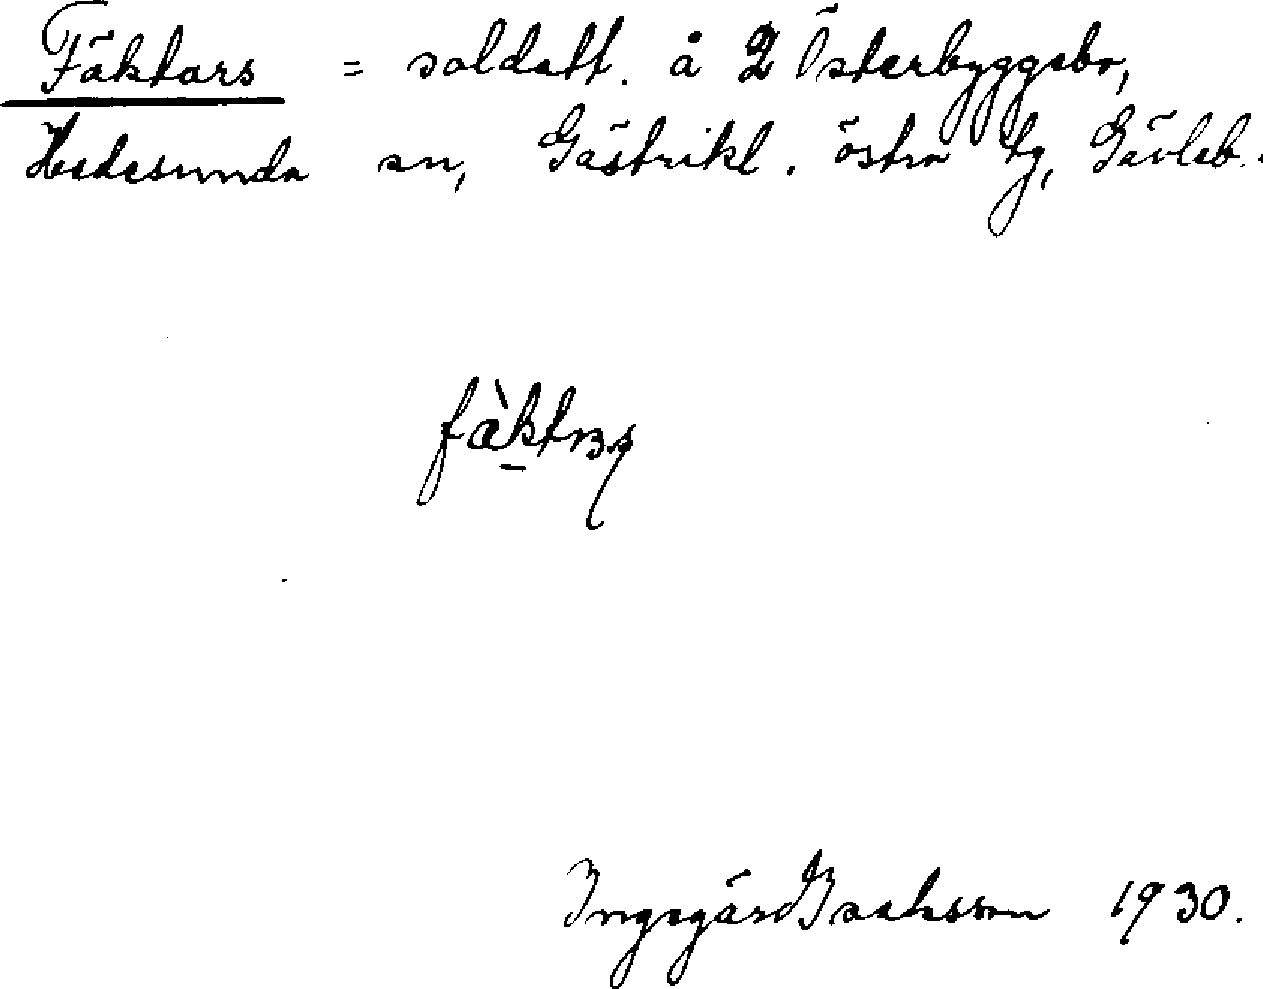 Fäktars = soldatt. å 2 Österbyggebo,
Hedesunda sn, Gästrikl. östra tg, Gävleb.
Ingegärd Isaksson 1930.